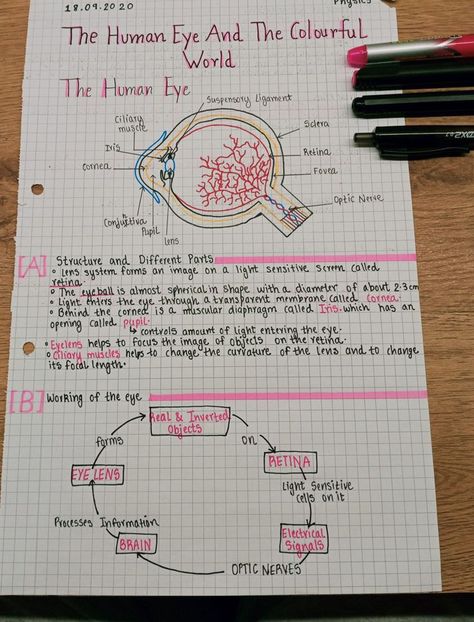 18.09.2020
Physics
The Human Eye And The Colourful
World
The Human Eye
Suspensory Ligament
Ciliary
muscle
Iris
Cornea
Sclera
Retina
Fovea
Optic Nerve
Conjuctiva
Pupil
Lens
[A] Structure and Different Parts
• Lens system forms an image on a light sensitive screen called
retina.
• The eyeball is almost spherical in shape with a diameter of about 2.3cm
• Light enters the eye through a transparent membrane called Cornea.
• Behind the cornea is a muscular diaphragm called Iris which has an
opening called pupil.
↳ controls amount of light entering the eye.
• Eyelens helps to focus the image of objects on the retina.
• Ciliary muscles helps to change the curvature of the lens and to change
its focal length.
[B] Working of the eye
Real & Inverted
Objects
forms
on
EYE LENS
RETINA
Light Sensitive
cells on it
Processes Information
BRAIN
Electrical
Signals
OPTIC NERVES